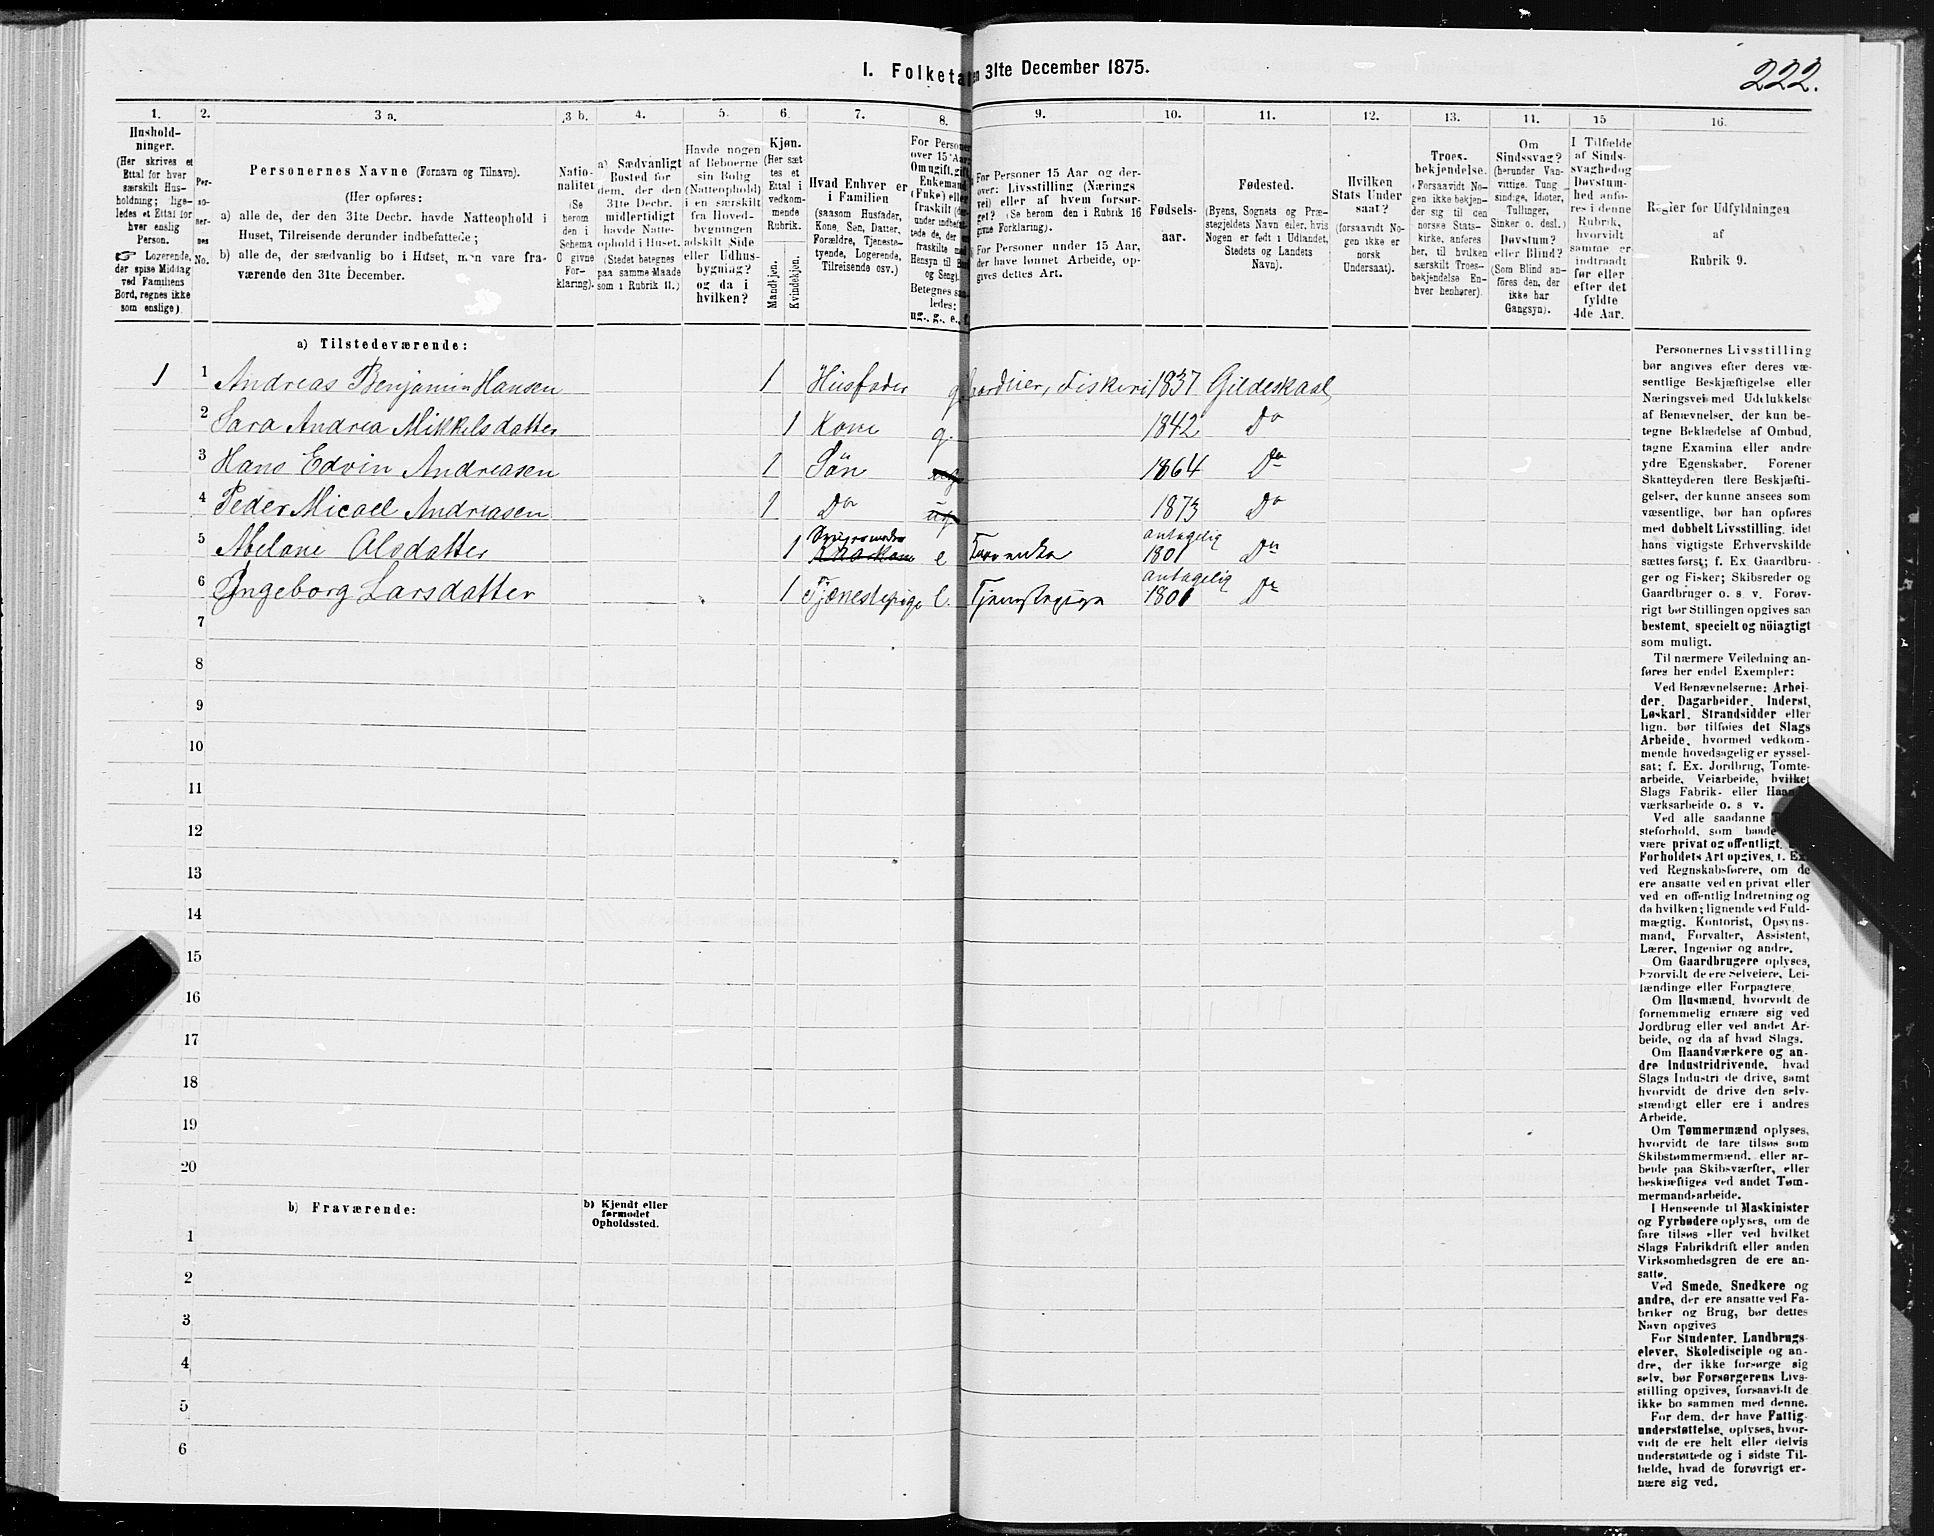 222.
I. Folketa en 31te December 1875.
1. 2. 3 a. 3 b. 4. 5. 6. 7. 8. 9. 10. 11. 12. 13. 14. 15 16.
Hushold-
ninger.
(Her skrives et
Ettal for hver
særskilt Hus-
holdning; lige-
ledes et Ettal for
hver enslig
Person.
☞ Logerende,
der spise Middag
ved Familiens
Bord, regnes ikke
som enslige).
Per-
so-
ner-
nes
No.
Personernes Navne (Fornavn og Tilnavn).
(Her opføres:
a) alle de, der den 31te Decbr. havde Natteophold i
Huset, Tilreisende derunder indbefattede;
b) alle de, der sædvanlig bo i Huset, men vare fra-
værende den 31te December.
Natio-
nalitet
(Se
herom
den i
Schema
C givne
For-
klaring).
a) Sædvanligt
Bosted for
dem, der den
31te Decbr.
midlertidigt
havde Natte-
ophold i Huset.
(Stedet betegnes
paa samme Maade
som i Rubrik 11.)
Havde nogen
af Beboerne
sin Bolig
(Natteophold)
i en særskilt
fra Hoved-
bygningen
adskilt Side
eller Udhus-
bygning?
og da i
hvilken?
Kjøn.
(Her sæt-
tes et
Ettal i
vedkom-
mende
Rubrik.
Mandkjøn.
Kvindekjøn.
Hvad Enhver er
i Familien
(saasom Husfader,
Kone, Søn, Datter,
Forældre, Tjeneste-
tyende, Logerende,
Tilreisende osv.)
For Personer
over 15 Aar
Om ugift, gift
Enkemand
(Enke) eller
fraskilt
Betegnes saa-
ledes:
ug., g., e., f.
For Personer 15 Aar og der-
over: Livsstilling (Nærings
vei) eller af hvem forsør-
get? (Se herom den i Rubrik 16
givne Forklaring).
For Personer under 15 Aar,
der have lønnet Arbeide, op-
gives dettes Art.
Fødsels-
aar.
Fødested.
(Byens, Sognets og Præ-
stegjeldets Navn eller, hvis
Nogen er født i Udlandet,
Stedets og Landets
Navn).
Hvilken
Stats Under
saat?
(forsaavidt No-
gen ikke er
norsk
Undersaat).
Troes-
bekjendelse.
(Forsaavidt No-
gen ikke bekjen-
der sig til den
norske Stats-
kirke, anføres
her, til hvilken
særskilt Troes-
bekjendelse En-
hver henhører).
Om
Sindssvag?
(herunder Van-
vittige, Tung
sindige, Idioter,
Tullinger,
Sinker o. desl.)
Døvstum?
eller Blind?
(Som Blind an-
føres den, der
ikke har
Gangsyn).
I Tilfælde
af Sinds-
svaghed og
Døvstum-
hed anfø-
res i denne
Rubrik,
hvorvidt
samme er
indtraadt
før eller
efter det
fyldte
4de Aar.
Regler for Udfyldningen
af
Rubrik 9.
a) Tilstedeværende:
1 1 Andreas Benjamin Hansen 1 Husfader g Gaardbruger, Fiskeri 1837 Gildeskaal
2 Sara Andrea Mikkelsdatter 1 Kone g. 1842 Do
3 Hans Edvin Andreasen 1 Søn ug 1864 Do
4 Peder Micael Andreasen 1 Do ug 1873 Do
5 Abelone Olsdatter 1 e antagelig 1801 Do
6 Ingeborg Larsdatter 1 Tjenestepige e. Tjenestepige antagelig 1801 Do
7
8
9
10
11
12
13
14
15
16
17
18
19
20
b) Fraværende:
b) Kjendt eller
formodet
Opholdssted.
1
2
3
4
5
6
Personernes Livsstilling
bør angives efter deres væ-
sentlige Beskjæftigelse eller
Næringsvei med Udelukkelse
af Benævnelser, der kun be-
tegne Beklædelse af Ombud,
tagne Examina eller andre
ydre Egenskaber. Forener
Skatteyderen flere Beskjæfti-
gelser, der kunne ansees som
væsentlige, bør han opføres
med dobbelt Livsstilling, idet
hans vigtigste Erhvervskilde
sættes først; f. Ex. Gaardbru-
ger og Fisker; Skibsreder og
Gaardbruger o. s. v. Forøv-
rigt bør Stillingen opgives saa
bestemt, specielt og nöiagtigt
som muligt.
Til nærmere Veiledning an-
føres her endel Exempler:
Ved Benævnelserne: Arbei-
der, Dagarbeider, Inderst,
Løskarl, Strandsidder eller
lign. bør tilføies det Slags
Arbeide, hvormed vedkom-
mende hovedsagelig er syssel-
sat; f. Ex. Jordbrug, Tomte-
arbeide, Veiarbeide, hvilket
Slags Fabrik- eller Haand-
værksarbeide o. s v.
Ved alle saadanne
steforhold, som baade
være privat og offentligt,
Forholdets Art opgives, f. Ex.
ved Regnskabsførere, om de
ere ansatte ved en privat eller
ved en offentlig Indretning og
da hvilken; lignende ved Fuld-
mægtig, Kontorist, Opsyns-
mand, Forvalter, Assistent,
Lærer, Ingeniør og andre.
Om Gaardbrugere oplyses,
hvorvidt de ere Selveiere, Lei-
lændinge eller Forpagtere.
Om Husmænd, hvorvidt de
fornemmelig ernære sig ved
Jordbrug eller ved andet Ar-
beide, og da af hvad Slags.
Om Haandværkere og an-
dre Industridrivende, hvad
Slags Industri de drive, samt
hvorvidt de drive den selv-
stændigt eller ere i andres
Arbeide.
Om Tømmermænd oplyses,
hvorvidt de fare tilsøs som
Skibstømmermænd, eller ar-
beide paa Skibsværfter, eller
beskjæftiges ved andet Tøm-
mermandsarbeide.
I Henseende til Maskinister
og Fyrbødere oplyses, om de
fare tilsøs eller ved hvilket
Slags Fabrikdrift eller anden
Virksomhedsgren de ere an-
satte.
Ved Smede, Snedkere og
andre, der ere ansatte ved Fa-
briker og Brug, bør dettes
Navn opgives
For Studenter, Landbrugs-
elever, Skoledisciple og an-
dre, der ikke forsørge sig
selv, bør Forsørgerens Livs-
stilling opgives, forsaavidt de
ikke bo sammen med denne.
For dem, der have Fattig-
understøttelse, oplyses, hvor-
vidt de ere helt eller delvis
understøttede og i sidste Til-
fælde, hvad de forøvrigt er-
nære sig ved.